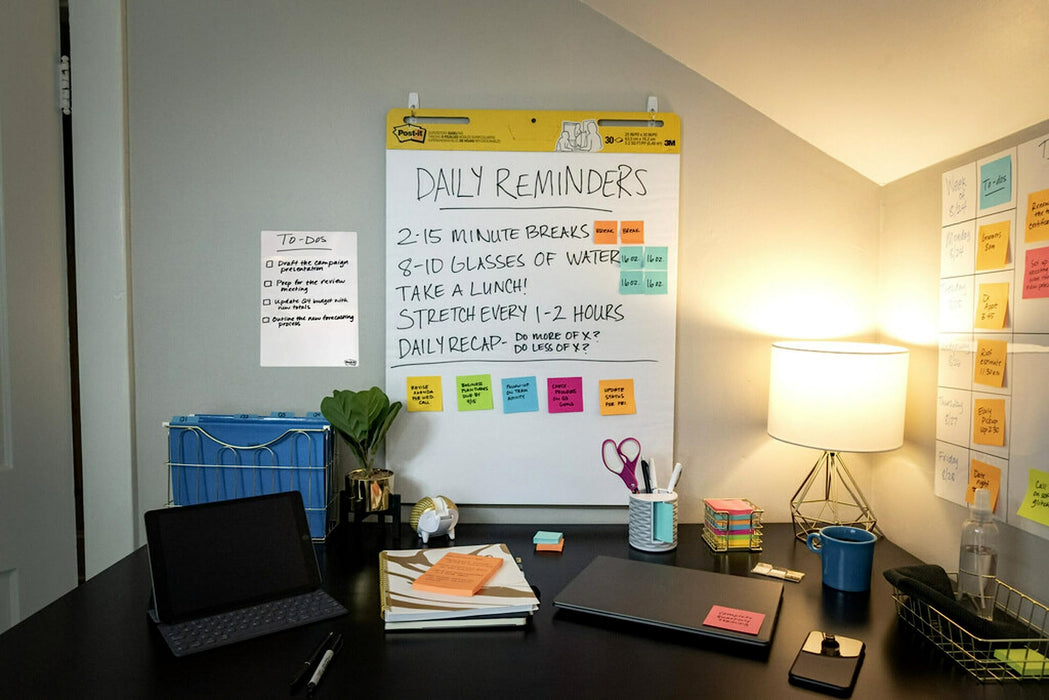 Post-it
30
3M
DAILY REMINDERS
2-15 MINUTE BREAKS
BREAK
BREAK
8-10 GLASSES OF WATER
16 oz.
16 oz.
16 oz.
16 oz.
TAKE A LUNCH!
STRETCH EVERY 1-2 HOURS
DAILY RECAP- DO MORE OF X?
DO LESS OF X?
REVISE
AGENDA
FOR WED.
CALL
BUSINESS
PLAN
DUE BY
9/15
FOLLOW-UP
ON TEAM
ACTIVITY
CHECK
PROGRESS
ON Q3
GOALS
UPDATE
STATUS
FOR FRI.
To-Dos
Draft the campaign
presentation
Prep for the review
meeting
Update Q4 budget with
new totals
Outline the new forecasting
process
Q1
Q2
Q3
Q4
Week
of
8/24
To-dos
Monday
8/24
Tuesday
Roof
estimate
11:30am
Thursday
Early
Pickup
Friday
8/28
Date
night
Call on